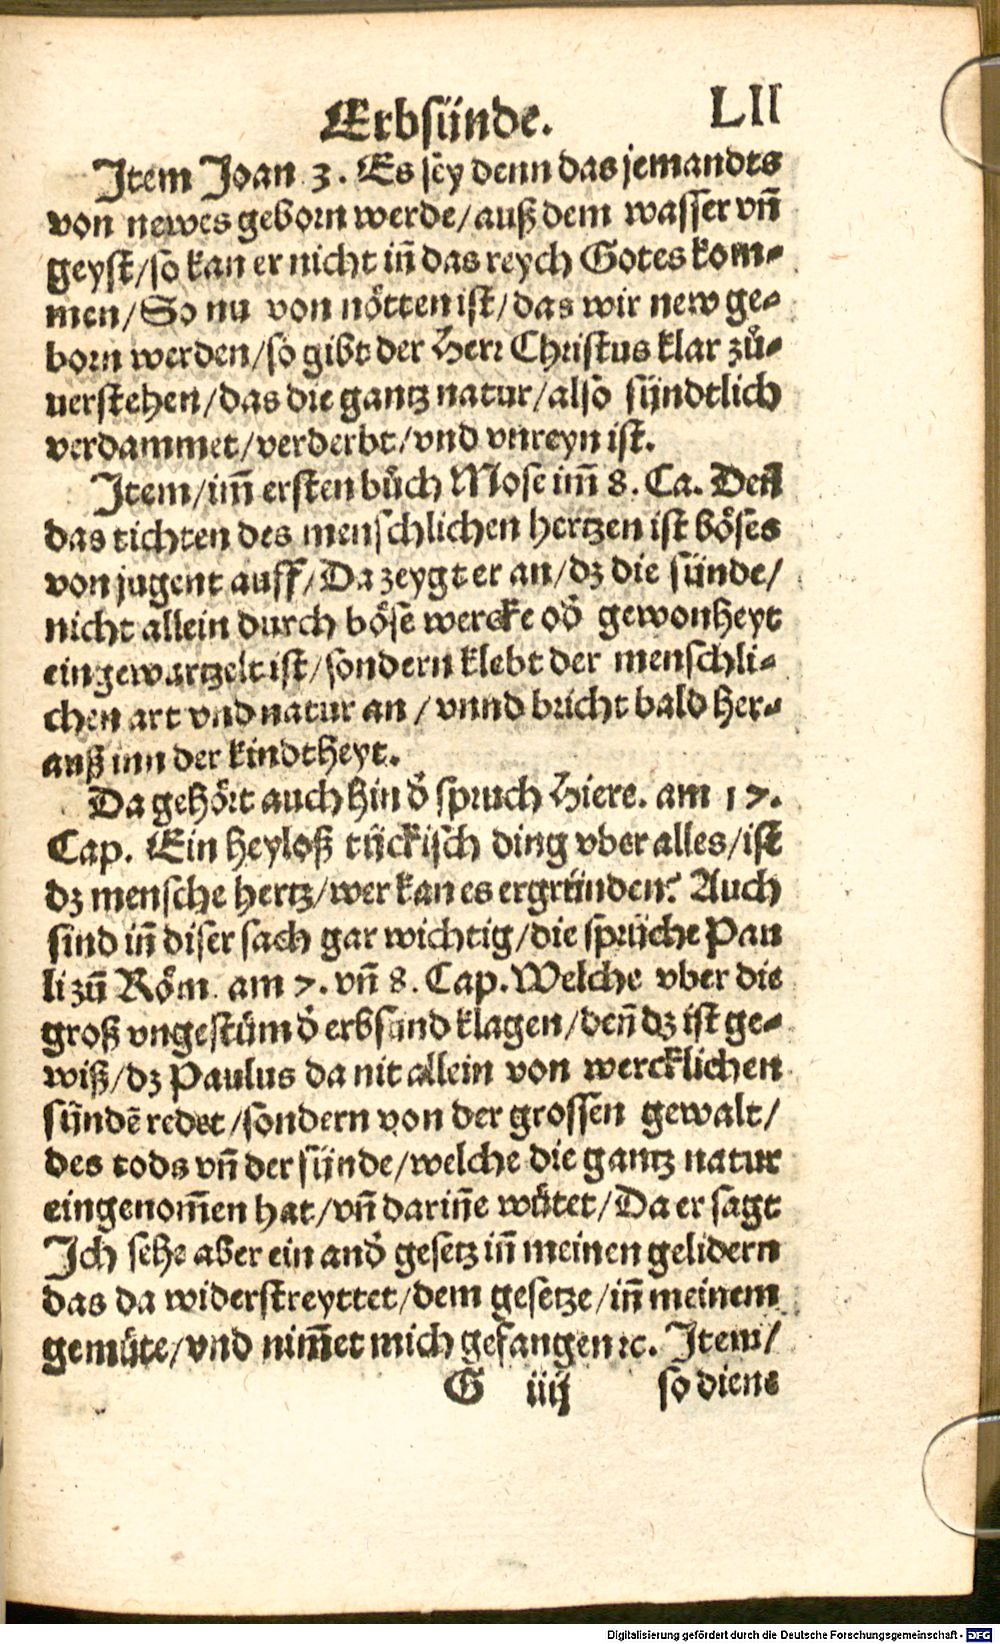 Erbsünde. LII
Item Joan 3. Es sey denn das jemandts
von newes geborn werde/auß dem wasser vñ
geyst/so kan er nicht iñ das reych Gotes kom-
men/So nu von nötten ist/das wir new ge-
born werden/so gibt der Herr Christus klar zů-
uerstehen/das die gantz natur/also sündtlich
verdammet/verderbt/vnd vnreyn ist.
Item/im̃ ersten bůch Mose im̃ 8. Ca. Deñ
das tichten des menschlichen hertzen ist böses
von jugent auff/Da zeygt er an/dz die sünde/
nicht allein durch böse wercke od̕ gewonheyt
eingewurtzelt ist/sondern klebt der menschli-
chen art vnd natur an/vnnd bricht bald her-
auß inn der kindtheyt.
Da gehört auch hin d̕ spruch Hiere. am 17.
Cap. Ein heyloß tückisch ding vber alles/ist
dz mensche hertz/wer kan es ergründen? Auch
sind iñ diser sach gar wichtig/die sprüche Pau
li zuñ Röm. am 7. vñ 8. Cap. Welche vber die
groß vngestüm d̕ erbsünd klagen/deñ dz ist ge-
wiß/dz Paulus da nit allein von wercklichen
sündē redet/sondern von der grossen gewalt/
des tods vñ der sünde/welche die gantz natur
eingenom̃en hat/vñ dariñe wütet/Da er sagt
Ich sehe aber ein and̕ gesetz iñ meinen gelidern
das da widerstreyttet/dem gesetze/iñ meinem
gemüte/vnd nim̃et mich gefangen ꝛc. Item/
G iiij so diene
Digitalisierung gefördert durch die Deutsche Forschungsgemeinschaft - DFG